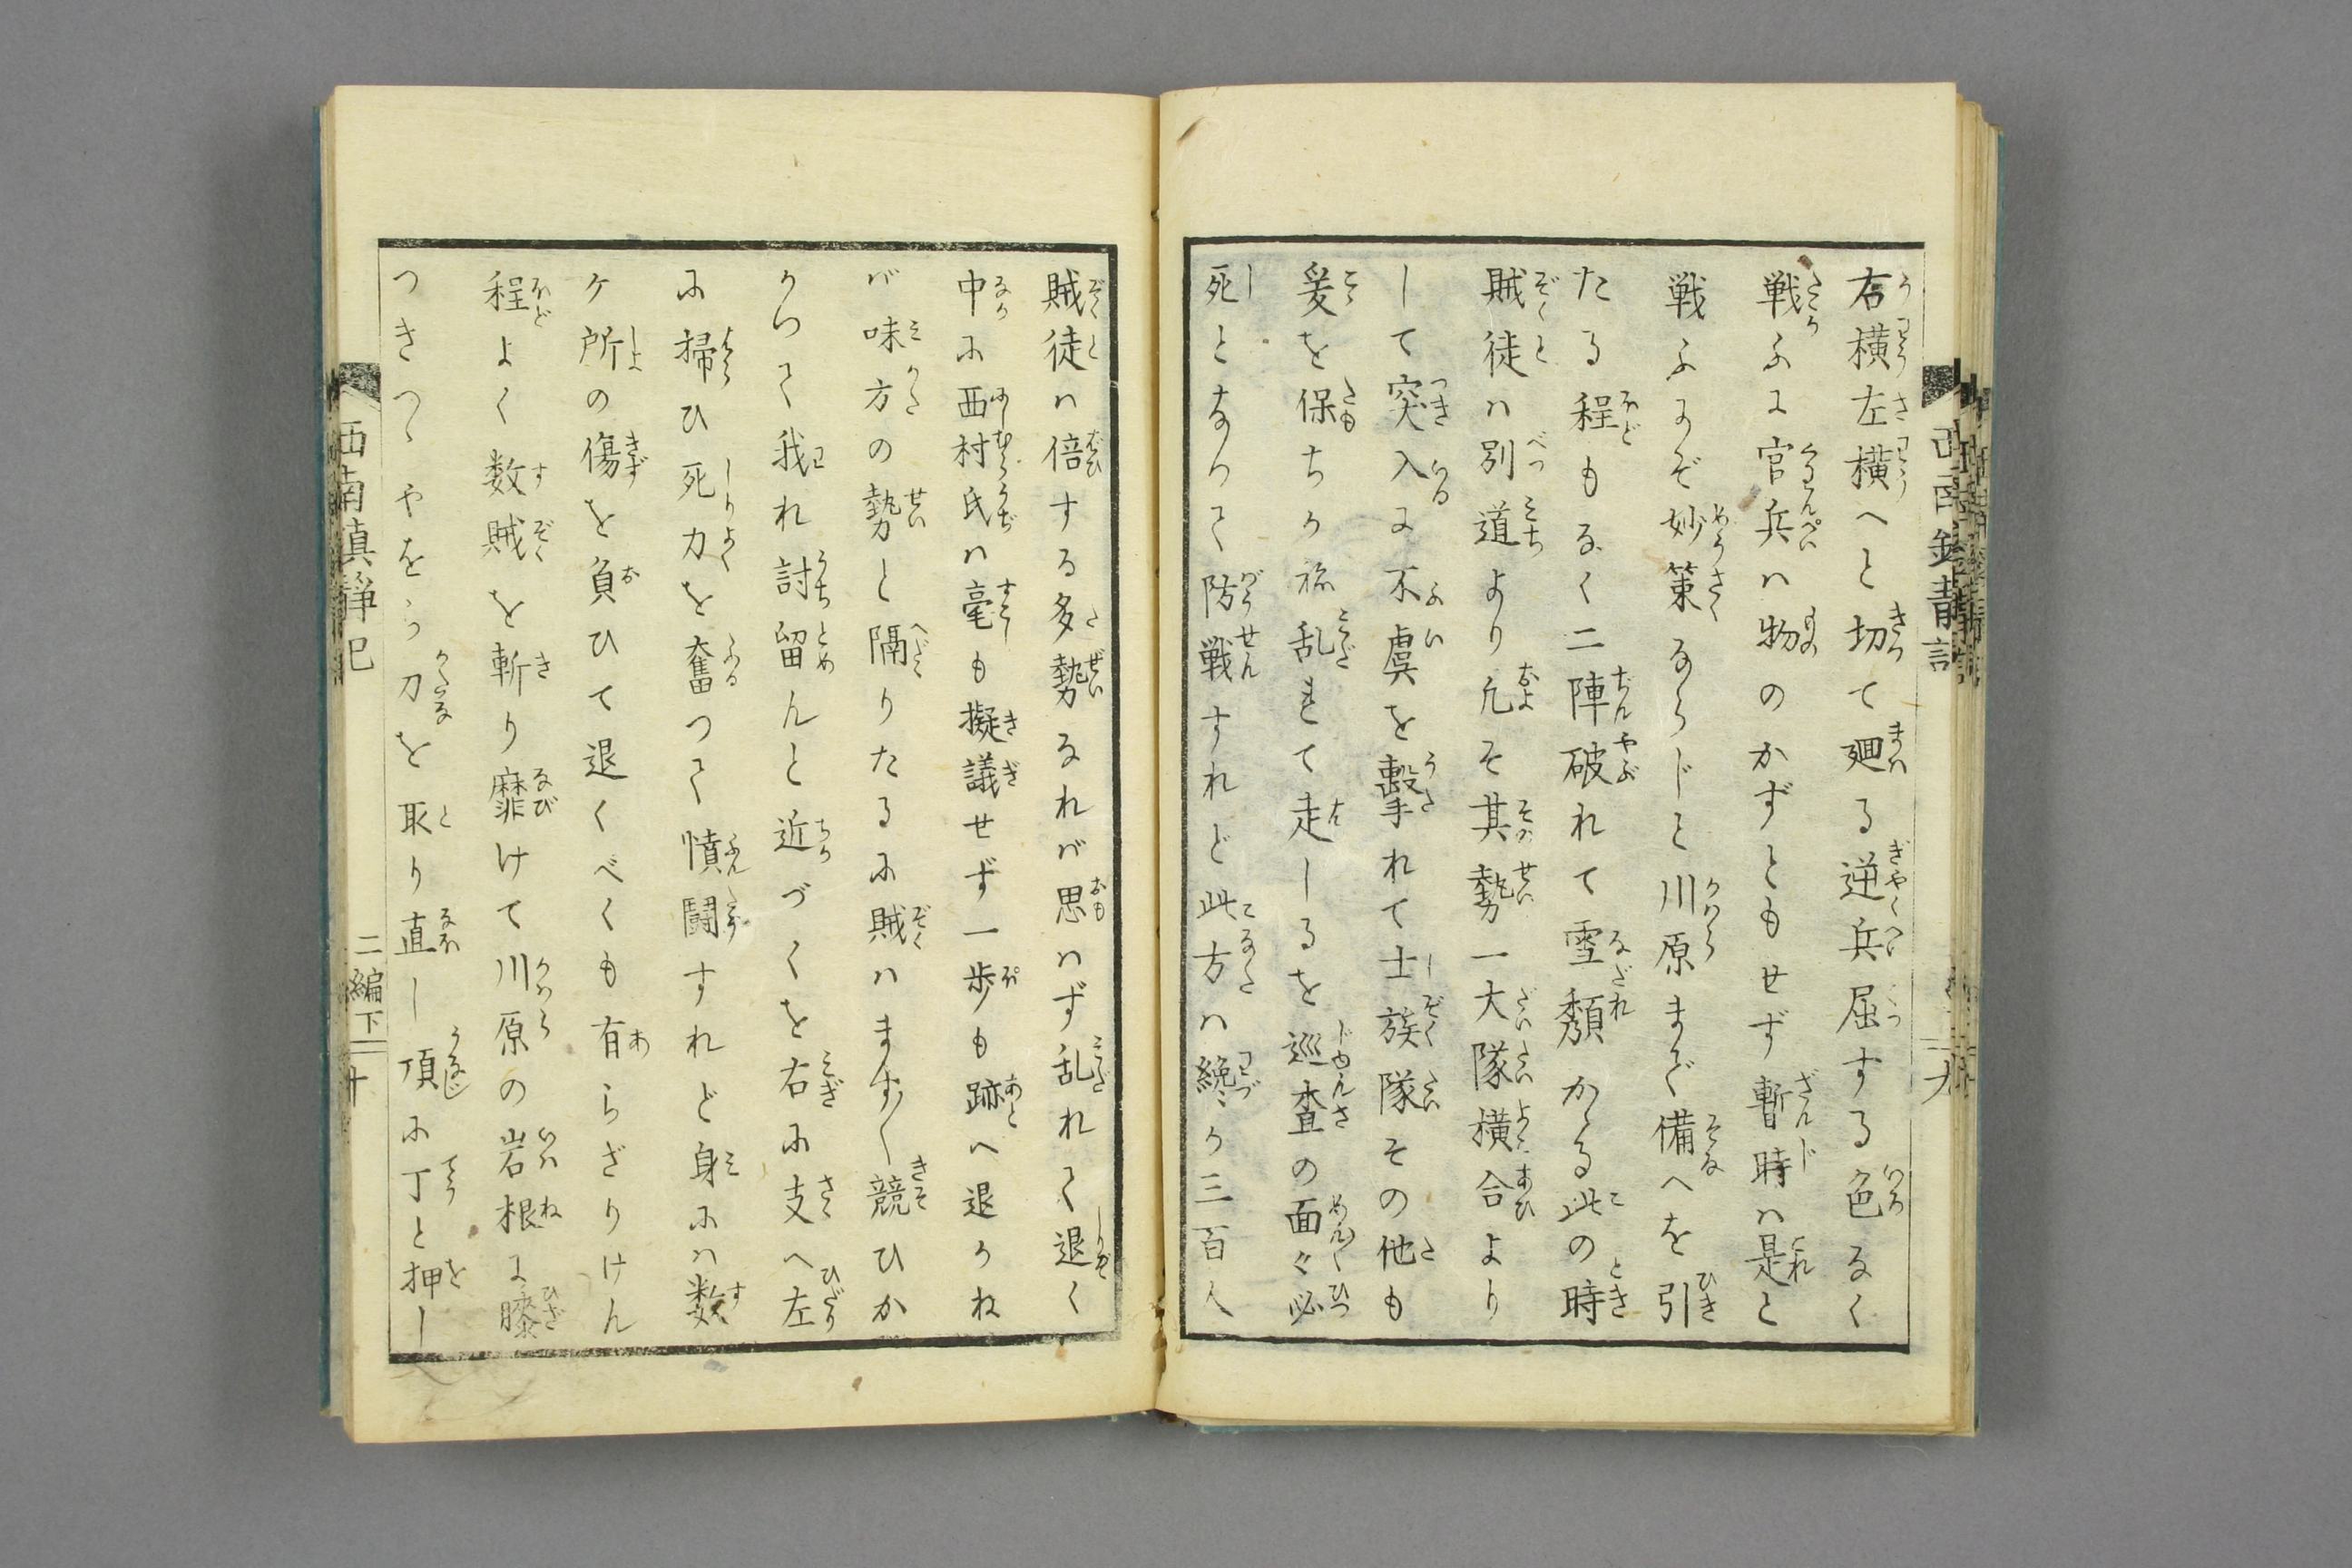 右横左横へと切て廻る逆兵屈する色なく
戦ふに官兵ハ物のかずともせず暫時ハ是と
戦ふよそぞ妙策ならじと川原まで備へを引
たる程もなく二陣破れて雪頽かゝる此の時
賊徒ハ別道より凡そ其勢一大隊横合より
して突入に不虞を撃れて士族隊その他も
爰を保ちか祢乱れて走しるを巡査の面々必
死となつて防戦すれど此方ハ纔か三百人
賊徒ハ倍する多勢なれバ思ハず乱れて退く
中に西村氏ハ毫も擬議せず一歩も跡へ退かね
バ味方の勢と隔りたるに賊ハます〳〵競ひか
かつて我れ討留んと近づくを右に支へ左
に掃ひ死力を奮つて憤闘すれど身にハ数
ケ所の傷を負ひて退くべくも有らざりけん
程よく数賊を斬り靡けて川原の岩根に膝
つきつゝやをら刀を取り直し項に丁と押し
西南真静記
二編下
二十